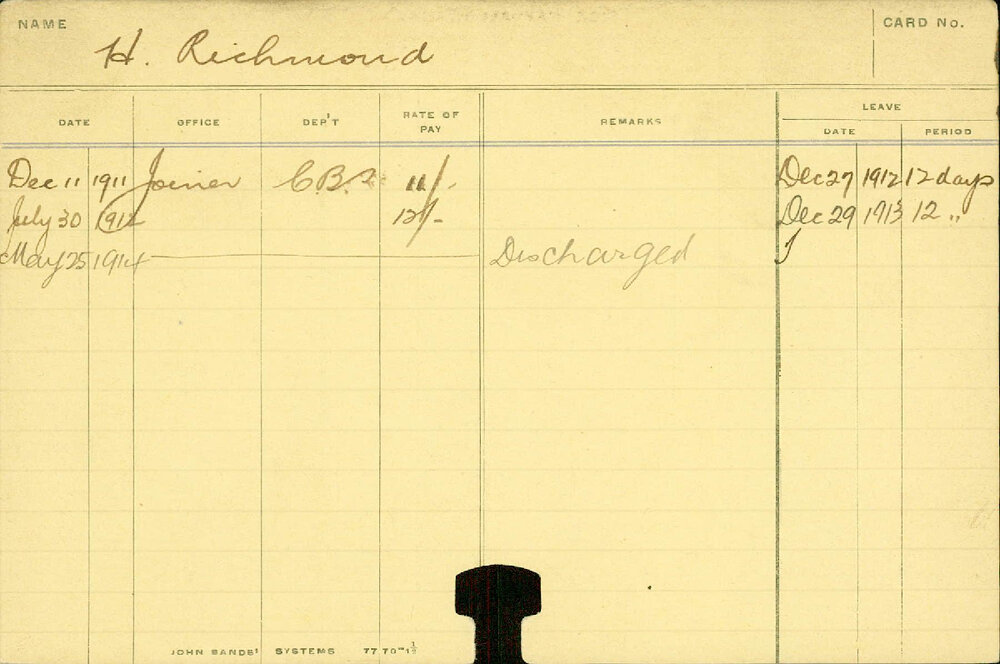 NAME
CARD No.
H. Richmond
LEAVE
DATE OFFICE DEP'T RATE OF PAY REMARKS DATE PERIOD
Dec 11 1911 Joiner 11/- Dec 27 1912 12 days
July 30 1912 12/- Dec 29 1913 12 "
May 25 1914 Discharged
JOHN SANDS' SYSTEMS